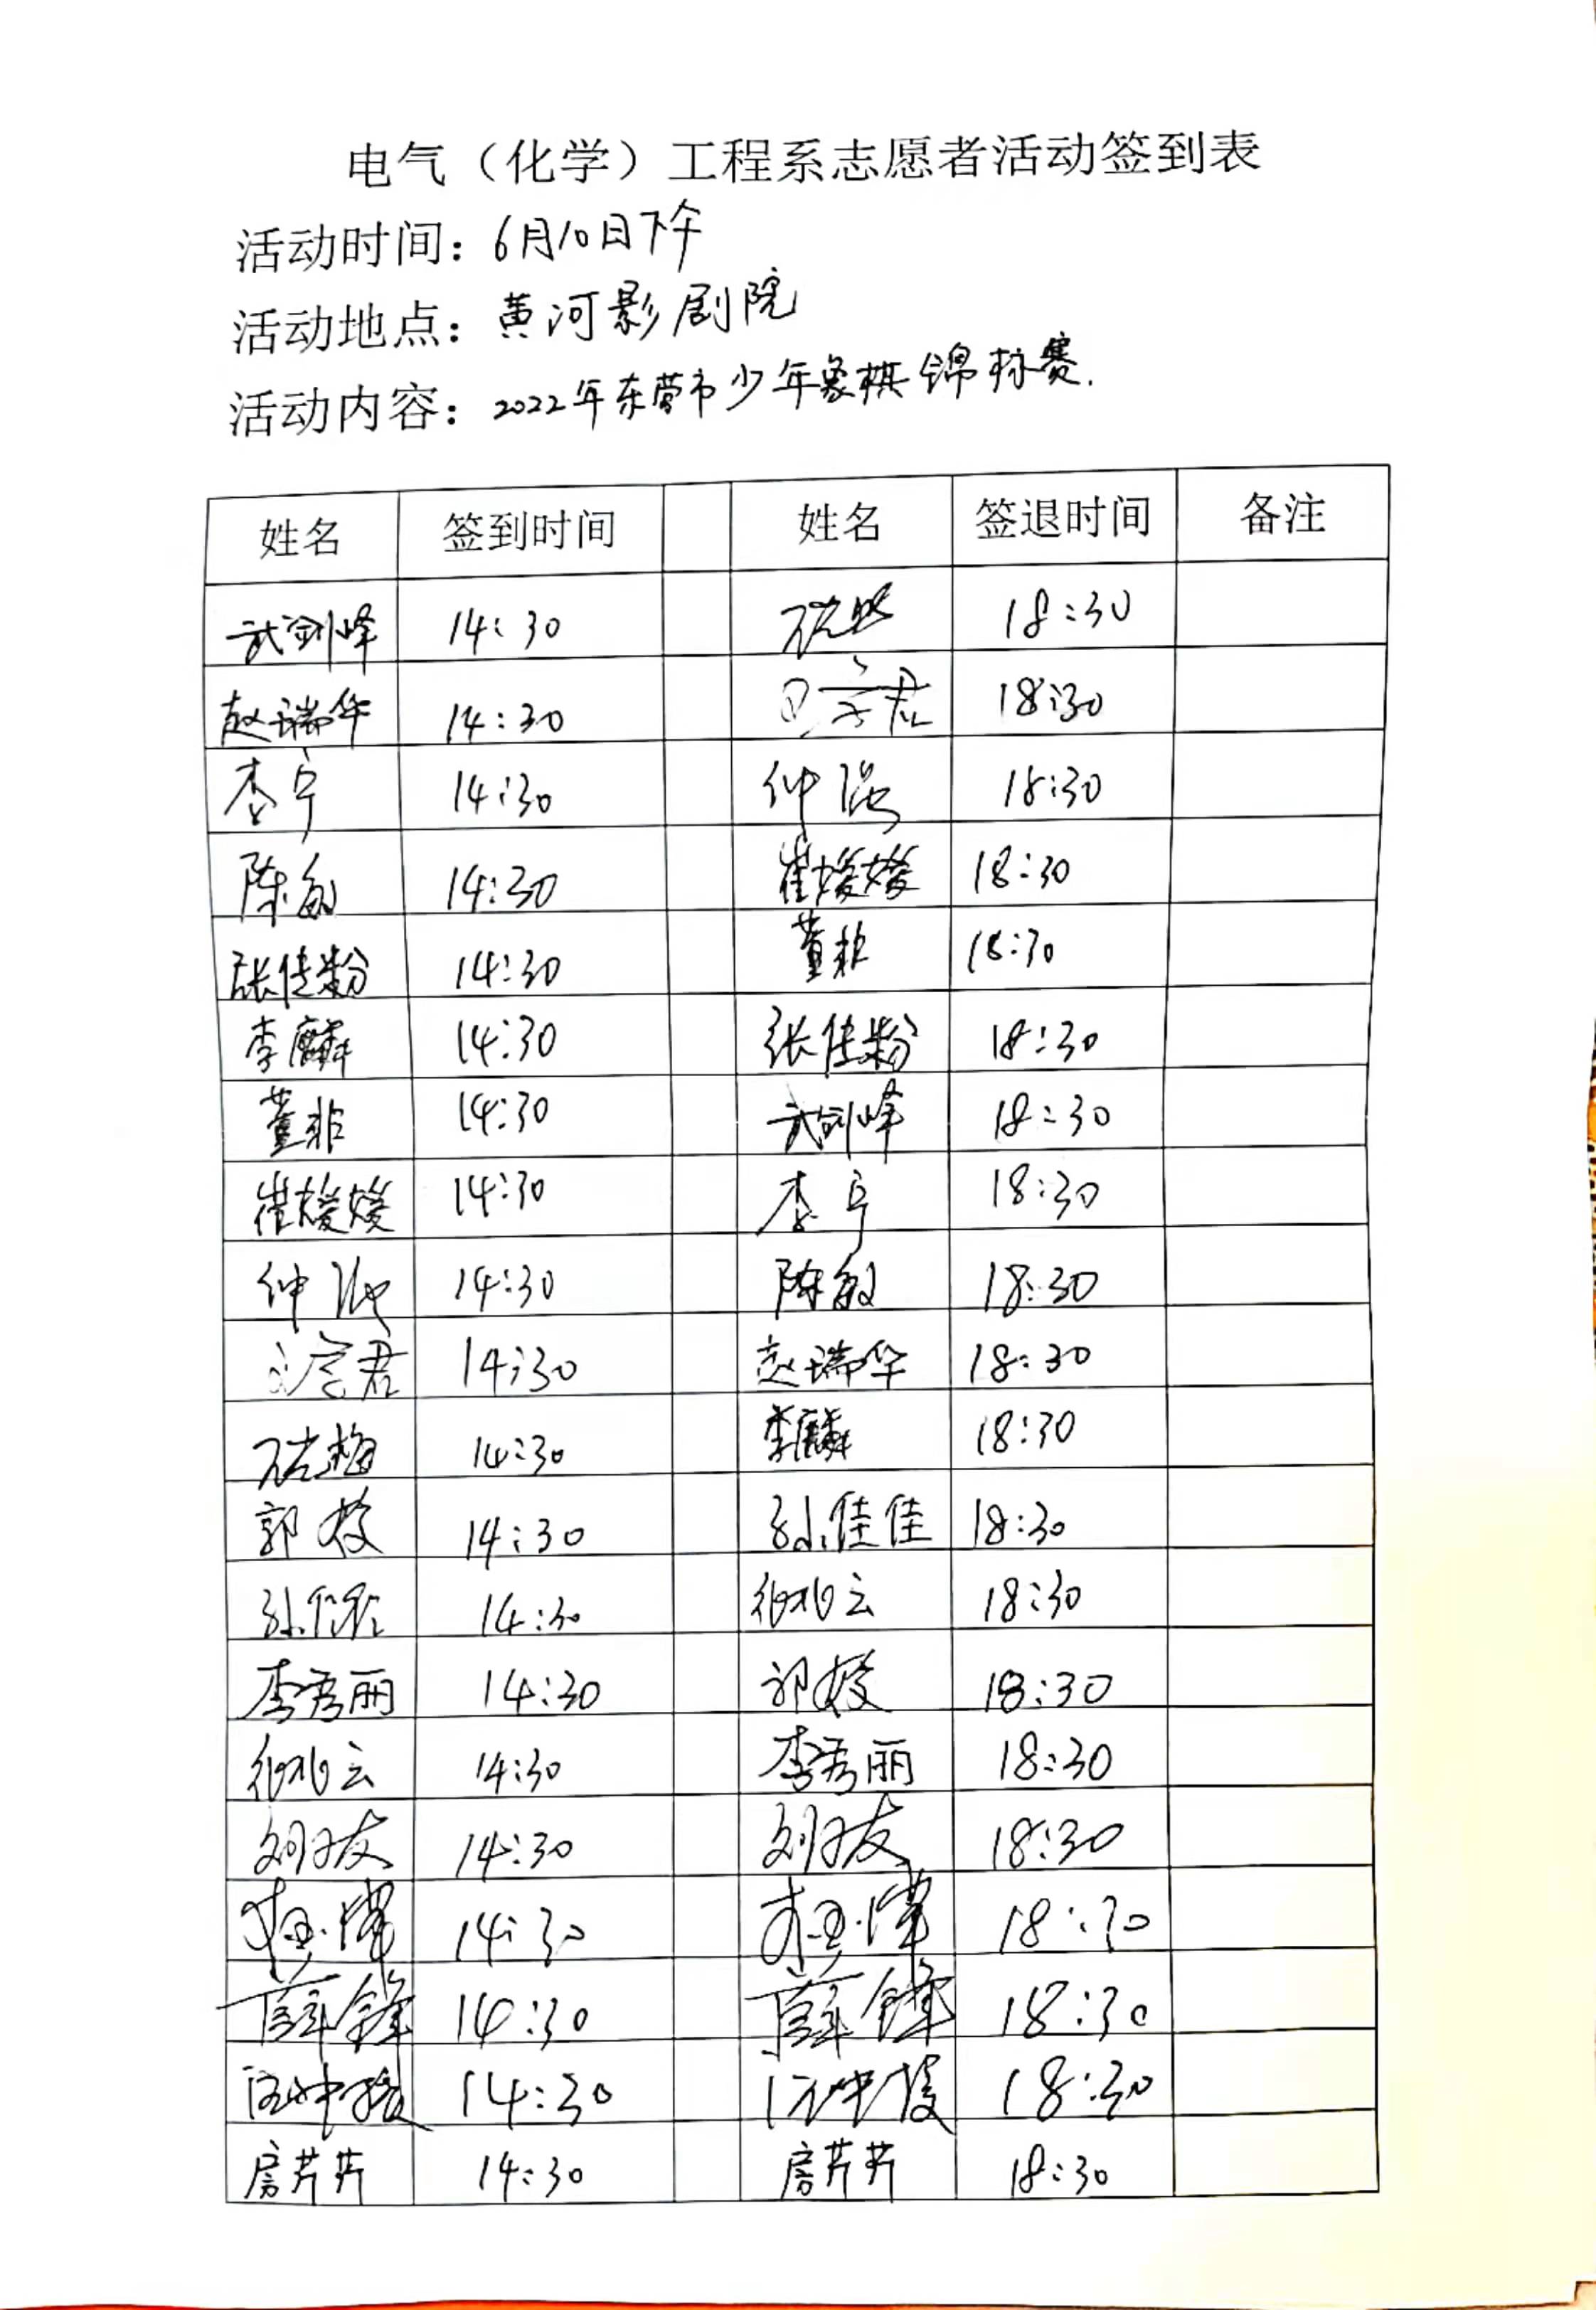 电气（化学）工程系志愿者活动签到表
活动时间：6月10日下午
活动地点：黄河影剧院
活动内容：2022年东营市少年象棋锦标赛.
姓名 签到时间 姓名 签退时间 备注
武剑峰 14:30 18:30
赵瑞华 14:30 18:30
李宁 14:30 仲强 18:30
陈敏 14:30 崔媛媛 18:30
张佳粉 14:30 董非 18:30
李麟 14:30 张佳粉 18:30
董非 14:30 武剑峰 18:30
崔媛媛 14:30 李宁 18:30
仲强 14:30 陈敏 18:30
14:30 赵瑞华 18:30
14:30 李麟 18:30
郭 14:30 孙佳佳 18:30
孙佳佳 14:30 云 18:30
李秀丽 14:30 郭 18:30
云 14:30 李秀丽 18:30
刘友 14:30 刘友 18:30
14:30 18:30
薛锋 14:30 薛锋 18:30
14:30 18:30
房芹芹 14:30 房芹芹 18:30